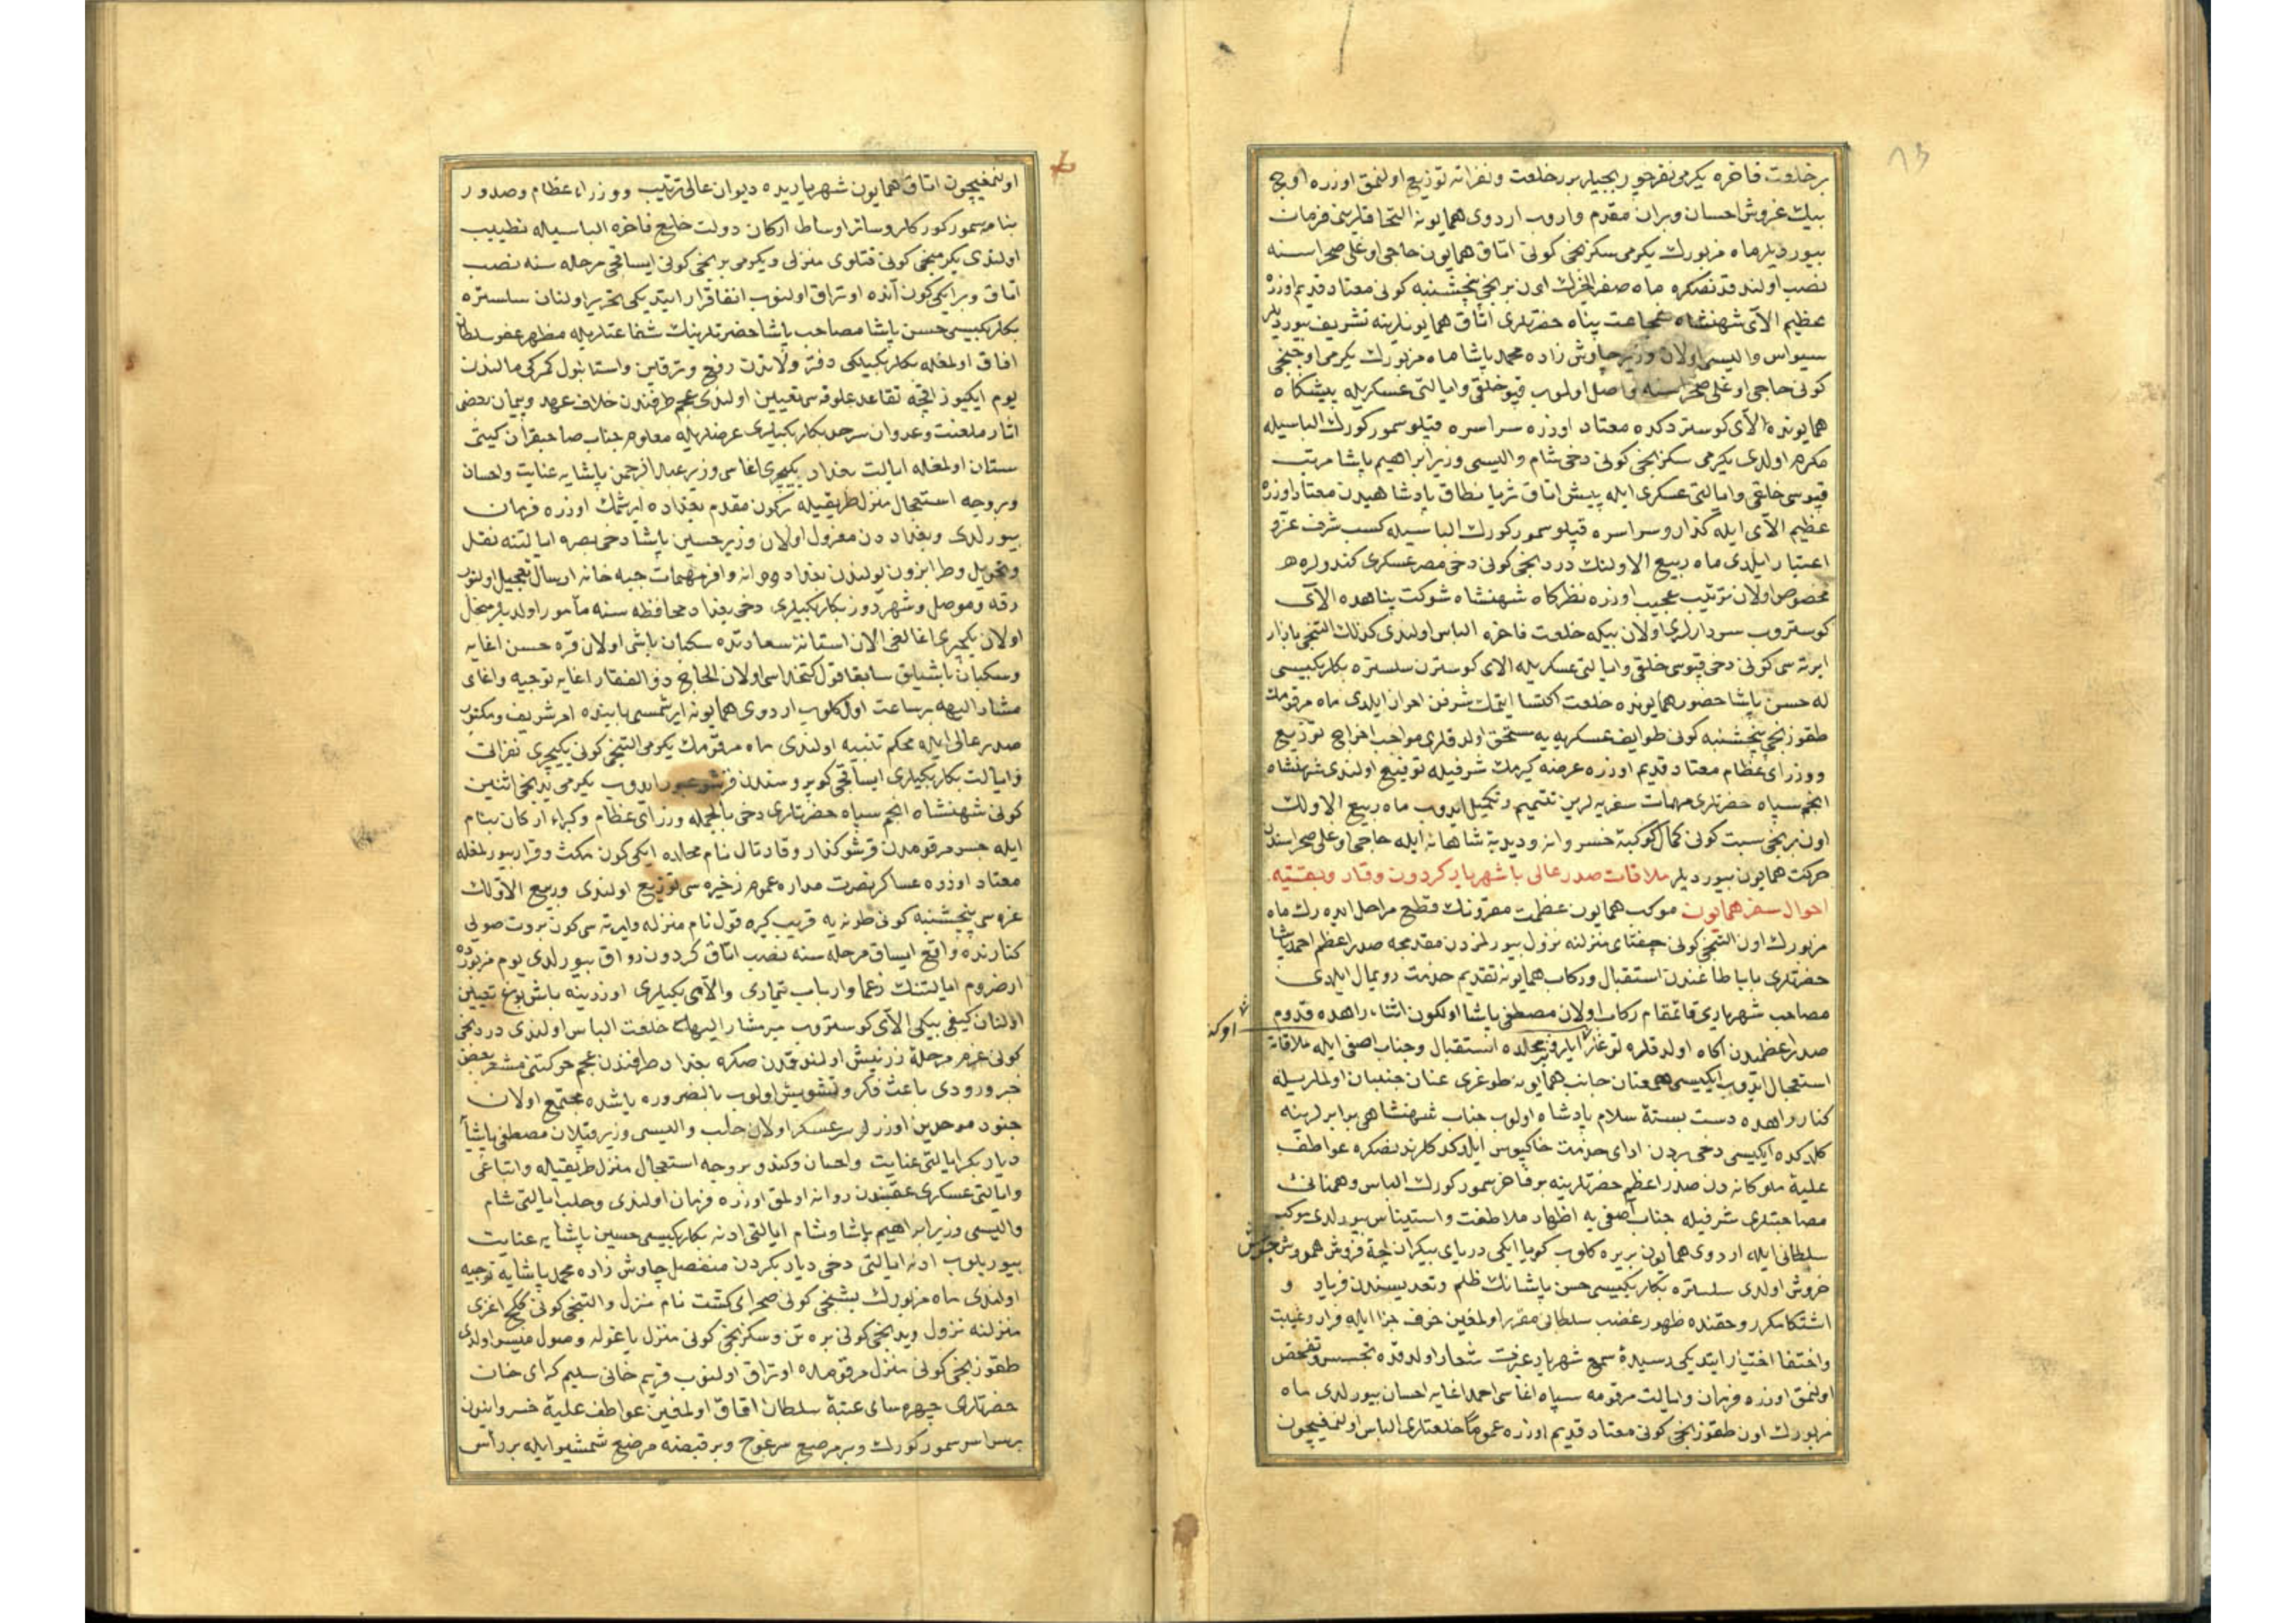 ٨٣
بر خلعت فاخره یكرمی نفر جوربجیلره بررخلعت و نفراته توزیع اولنمق اوزره اوچ
بیك غروش احسان و بران مقدم واروب اردوی همایونه التحاقلرین فرمان
بیوردیلر ماه مزبورك یكرمی سكزنجی كونی اتاق همایون حاجی اوغلی صحراسنه
نصب اولندقدنصكره ماه صفر الخیرك اون برنجی پنجشنبه كونی معتاد قدیم اوزره
عظیم الآی شهنشاه پناه حضرتلری اتاق همایونلرینه تشریف بیوردیلر
سیواس والیسی اولان وزیر چاوش زاده محمد پاشا ماه مزبورك یكرمی اوچنجی
كونی حاجی اوغلی صحراسنه واصل اولوب قپو خلقی و ایالتی عسكریله پیشكاه
همایونده الآی كوستردكده معتاد اوزره سراسره قپلو سمور كورك الباسیله
مكرم اولدی یكرمی سكزنجی كونی دخی شام والیسی وزیر ابراهیم پاشا مرتب
قپوسی خلقی و ایالتی عسكری ایله پیش اتاق ثریا نطاق پادشاهیدن معتاد اوزره
عظیم الآی ایله كذار و سراسره قپلو سمور كورك الباسیله كسب شرف عز و
اعتبار ایلدی ماه ربیع الاولنك دردنجی كونی دخی مصر عسكری كندولره
مخصوص اولان ترتیب عجیب اوزره نظركاه شهنشاه شوكت پناهده الآی
كوستروب سردارلری اولان بیكه خلعت فاخره الباس اولندی كذلك التنجی بازار
ایرته سی كونی دخی قپوسی خلقی و ایالتی عسكریله الای كوسترن سلستره بكلربكیسی
حسن پاشا حضور همایونده خلعت اكتسا ایتمك شرفن احراز ایلدی ماه مرقومك
طقوزنجی پنجشنبه كونی طوایف عسكریه یه مستحق اولدقلری مواجب اخراج توزیع
ووزرای عظام معتاد قدیم اوزره عرضه كیرمك شرفیله اولندی شهنشاه
انجم سپاه حضرتلری مهمات سفریه لرین تتمیم و تكمیل ایدوب ماه ربیع الاولك
اون برنجی سبت كونی كمال كوكبهٔ خسروانه و دبدبهٔ شاهانه ایله حاجی اوغلی صحراسندن
حركت همایون بیوردیلر ملاقات صدر عالی با شهریار كردون وقار وبقیّه
احوال سفر همایون موكب همایون عظمت مقرونك قطع مراحل ایدهرك ماه
مزبورك اون التنجی كونی منزلنه نزول بیورلمزدن مقدمجه صدر اعظم احمد پاشا
حضرتلری بابا طاغندن استقبال و ركاب همایونه تقدیم خدمت رویمال ایلدی
مصاحب شهریاری قائمقام ركاب اولان مصطفی پاشا اولكون اثناء راهده قدوم
صدر اعظمیدن اكاه اولدقلرنده استقبال و جناب اصفی ایله ملاقات
استعجال ایدوب ایكیسی همعنان جانب همایونه طوغری عنان جنبان اولملریله
كنار راهده دست بستهٔ سلام پادشاه اولوب جناب شهنشاهی برابرلرینه
كلدكده ایكیسی دخی بردن ادای خدمت خاكپوس ایلدكدن صكره عواطف
علیهٔ ملوكانه دن صدر اعظم حضرتلرینه بر فاخر سمور كورك الباس و همنانی
مصاحبتلری شرفیله جناب آصفی یه اظهار ملاطفت و استیناس بیورلدی موكب
سلطانی ایله اردوی همایون بریره كلوب كویا ایكی دریای بیكران
خروش اولدی سلستره بكلربكیسی حسن پاشانك ظلم و تعدیسندن فریاد و
اشتكا مكرر و حقنده ظهور غضب سلطانی مقرر اولمغین خوف جزا ایله فرار و غیبت
و اختفا اختیار ایتدیكی رسیدهٔ سمع شهریار غیرت شعار اولدقده تجسس و تفحص
اولنمق اوزره فرمان و ایالت مرقومه سپاه اغاسی احمد اغایه احسان بیورلدی ماه
مزبورك اون طقوزنجی كونی معتاد قدیم اوزره عموما خلعتلری الباس اولنمغیچون
اولنمغیچون اتاق همایون شهریاریده دیوان عالی ترتیب و وزراء عظام وصدور
بنامه سمور كوركلر و سائر اوساط اركان دولت خلع فاخره الباسیله تطییب
اولندی یكرمنجی كونی قتلوی منزلی و یكرمی برنجی كونی ایساقجی مرحله سنه نصب
اتاق و برایكی كون آنده اوتراق اولنوب اتفاقرار ایتدیكی تحریر اولنان سلستره
بكلربكیسی حسن پاشا مصاحب پاشا حضرتلرینك شفاعتلریله مظهر عفو سلطان
افاق اولمغله بكلربكیلكی دفتر ولاتدن رفع و ترقین و استانبول كمركی مالندن
یوم ایكیوز اقچه تقاعد علوفه سی تعیین اولندی عجم طرفندن خلاف عهد و پیمان بعضی
اثار ملعنت و عدوان سرحد بكلربكیلری عرضلریله معلوم جناب صاحبقران كیتی
ستان اولمغله ایالت بغداد یكیچری اغاسی وزیر عبد الرحمن پاشایه عنایت واحسان
و بروجه استعجال منزل طریقیله بركون مقدم بغداده ایرشمك اوزره فرمان
بیورلدی و بغداددن معزول اولان وزیر حسین پاشا دخی بصره ایالتنه نقل
و تحویل و طرابزون یولندن بغداده وافر مهمات جبه خانه ارسال تعجیل اولنوب
رقه و موصل و شهرزور بكلربكیلری دخی بغداد محافظه سنه مأمور اولدیلر منحل
اولان یكیچری اغالغی الان استانهٔ سعادتده سكبان باشی اولان قره حسن اغایه
و سكبان باشیلق سابقا قول كتخداسی اولان الحاج ذو الفقار اغایه توجیه و اغای
مشار الیهه بر ساعت اول كلوب اردوی همایونه ایرشمسی بابنده امر شریف و مكتوب
صدر عالی ایله محكم تنبیه اولندی ماه مرقومك یكرمی التنجی كونی یكیچری نفراتی
و ایالت بكلربكیلری ایساقجی كوپروسندن قرشو عبور ایدوب یكرمی یدنجی اثنین
كونی شهنشاه انجم سپاه حضرتلری دخی بالجمله وزرای عظام و كبراء اركان بنام
ایله جسر مرقومدن قرشو كذار و قارتال نام محلده ایكی كون مكث و قرار بیورلمغله
معتاد اوزره عساكر نصرت مداره عموم زخیره سی توزیع اولندی و ربیع الاولك
غره سی پنجشنبه كونی طونه یه قریب كیره قول نام منزله و ایرته سی كون بروت صولی
كنارنده واقع ایساق مرحله سنه نصب اتاق كردون رواق بیورلدی یوم مزبورده
ارضروم ایالتنك زعما و ارباب تیماری و الآی بكیلری اوزرینه باش بوغ تعیین
اولنان كیفی بیكی الآی كوستروب میر مشار الیهه خلعت الباس اولندی دردنجی
كونی عزم مرحلهٔ اولندقدن صكره بغداد طرفندن عجم حركتنی مشعر بعض
خبر ورودی باعث فكر و تشویش اولوب بالضروره یاشده مجتمع اولان
جنود موحدین اوزرلره سرعسكر اولان حلب والیسی وزیر قپلان مصطفی پاشایه
دیاربكر ایالتی عنایت و احسان و كندو بروجه استعجال منزل طریقیله و اتباعی
و ایالتی عسكری عقبندن روانه اولمق اوزره فرمان اولندی و حلب ایالتی شام
والیسی وزیر ابراهیم پاشا و شام ایالتی ادنه بكلربكیسی حسین پاشایه عنایت
بیوریلوب ادنه ایالتی دخی دیاربكردن منفصل چاوش زاده محمد پاشایه توجیه
اولندی ماه مزبورك بشنجی كونی صحرای كشت نام منزل و التنجی كونی كلج اغزی
منزلنه نزول و یدنجی كونی و سكزنجی كونی منزل یاغوله وصول میسر اولدی
طقوزنجی كونی منزل مرقومده اوتراق اولنوب قریم خانی سلیم كرای خان
حضرتلری چهره سای عتبهٔ سلطان افاق اولمغین عواطف علیهٔ خسروانیدن
بر سراسر سمور كورك و بر مرصع سرغوج و بر قبضه مرصع شمشیر ایله بر رأس